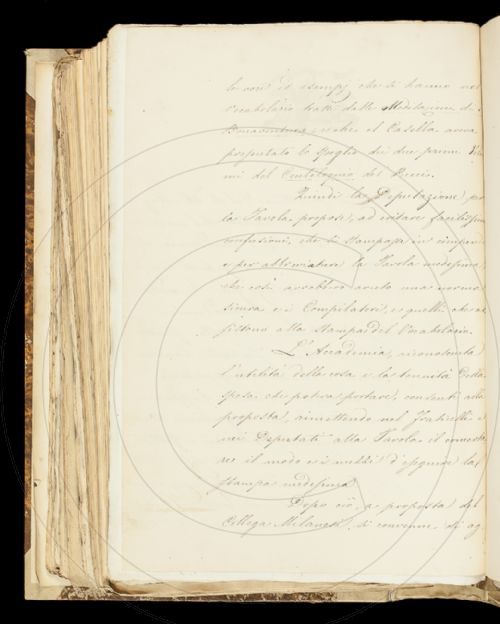 le voci ed esempj che si hanno nel
Vocabolario tratti dalle Meditazioni di
Bonaventura; e che il Casella aveva
presentato lo spoglio dei due primi
mi del Centiloquio del Pucci.
Quindi la Deputazione per
la Tavola propose, ad evitare facilissime
confusioni, che si stampasse
e per abbreviature la Tavola medesima,
che così avrebbero avuto una norma
sicura e i Compilatori, e quelli che as
sistono alla stampa del Vocabolario.
L'Accademia, riconosciuta
l'utilità della cosa e la tenuità della
spesa che poteva portare, consentì alla
proposta, rimettendo nel Fraticelli e
nei Deputati alla Tavola il
re il modo e i mezzi d'eseguire la
stampa medesima.
Dopo ciò, a proposta del
Collega Milanesi, si convenne di ag